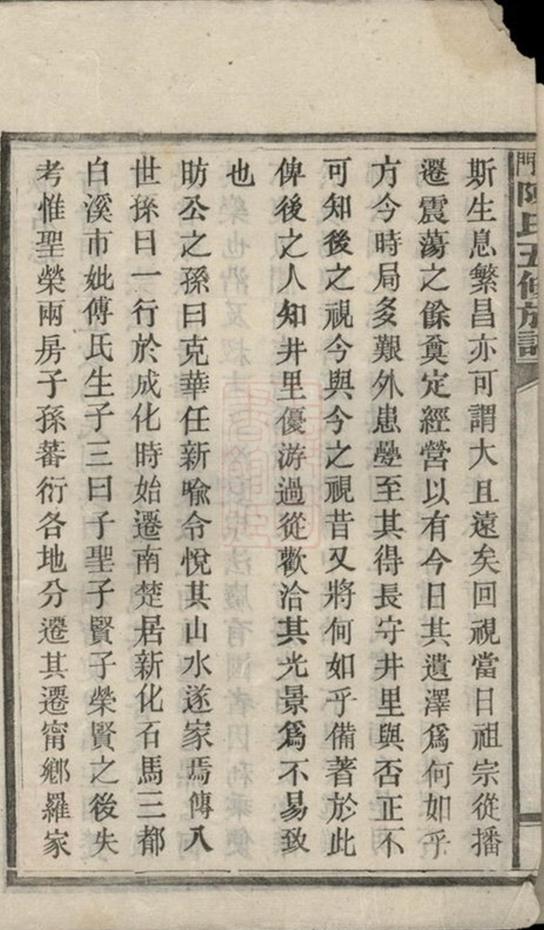 門陳氏五修族譜
斯生息繁昌亦可謂大且遠矣回視當日祖宗從播
遷震蕩之餘奠定經營以有今日其遺澤為何如乎
方今時局多艱外患疊至其得長守井里與否正不
可知後之視今與今之視昔又將何如乎備著於此
俾後之人知井里優游過從歡洽其光景為不易致
也
昉公之孫曰克華任新喻令悅其山水遂家焉傳入
世孫曰一行於成化時始遷南楚居新化石馬三都
白溪市妣傅氏生子三曰子聖子賢子榮賢之後失
考惟聖榮兩房子孫蕃衍各地分遷其遷甯鄉羅家